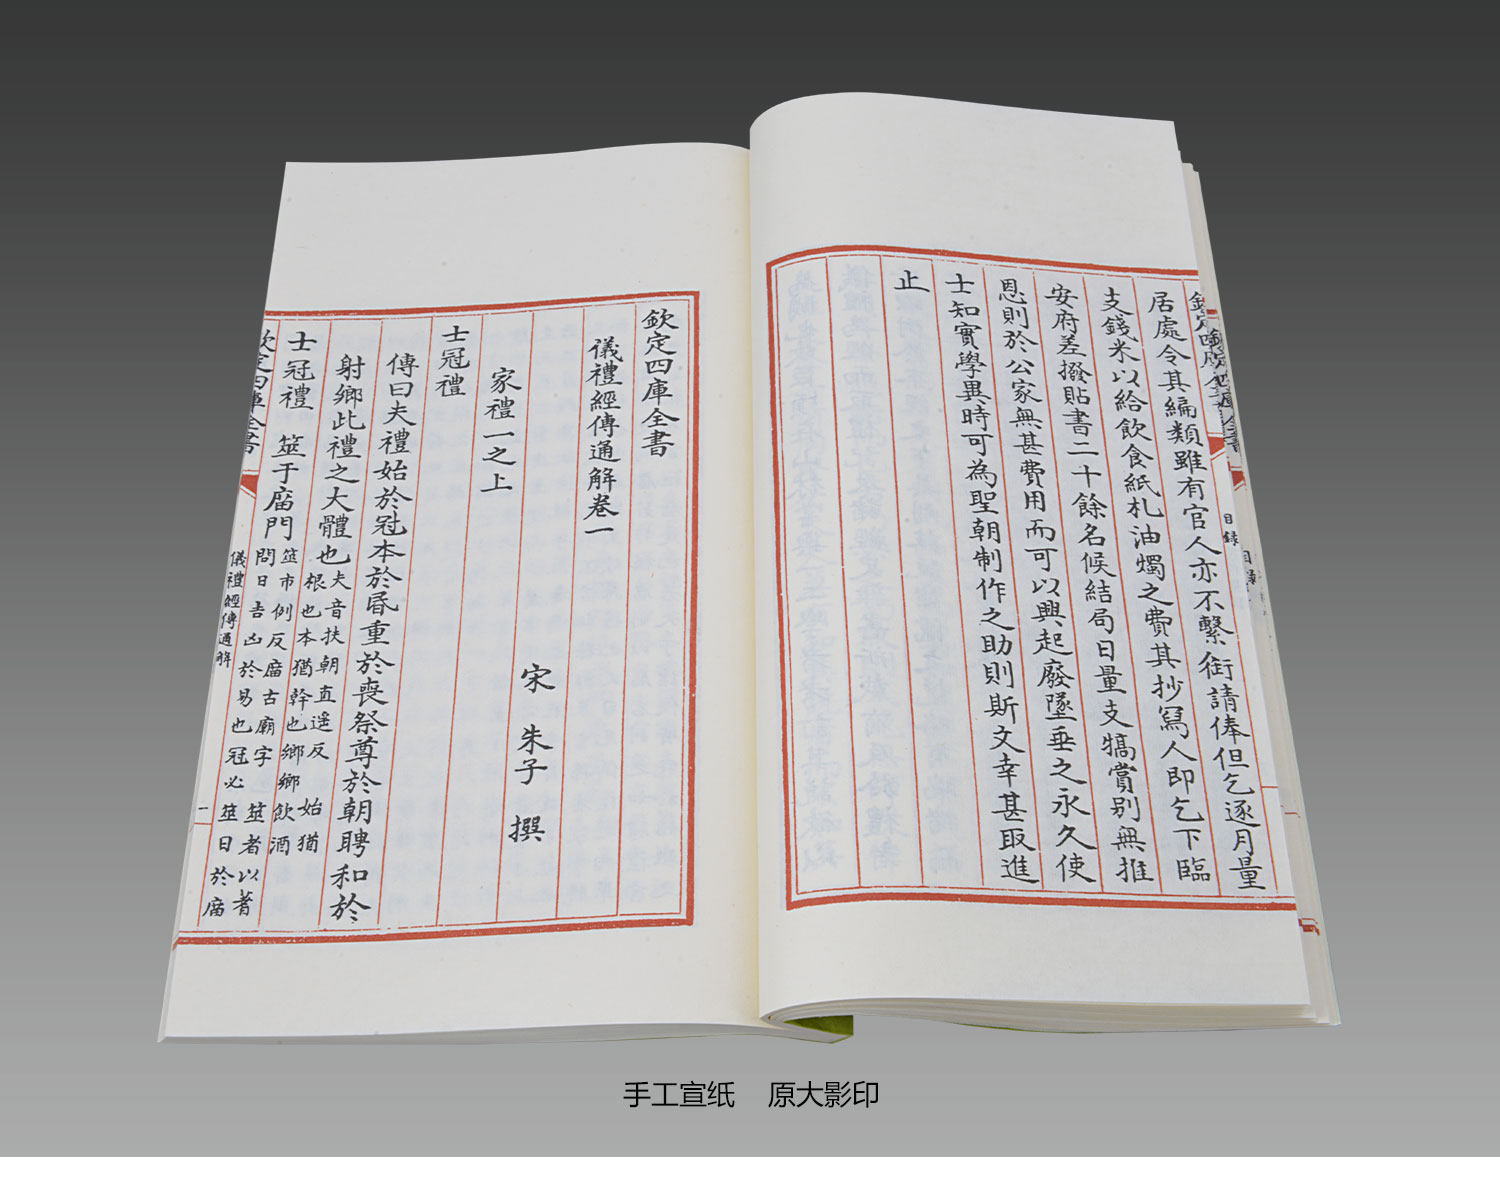 居處令其編類雖有官人亦不繫銜請俸但乞逐月量
支錢米以給飲食紙札油燭之費其抄寫人即乞下臨
安府差撥貼書二十餘名候結局日量支犒賞別無推
恩則於公家無甚費用而可以興起廢墜垂之永久使
士知實學異時可為聖朝制作之助則斯文幸甚取進
止
欽定四庫全書
儀禮經傳通解卷一
宋 朱子 撰
家禮一之上
士冠禮
傳曰夫禮始於冠本於昬重於喪祭尊於朝聘和於
射鄉此禮之大體也夫音扶朝直遥反 始猶
根也本猶幹也鄉鄉飲酒
士冠禮 筮于庿門筮市例反庿古廟字 筮者以蓍
問日吉凶於易也冠必筮日於庿
欽定四庫全書
儀禮經傳通解
一
目錄
手工宣纸 原大影印